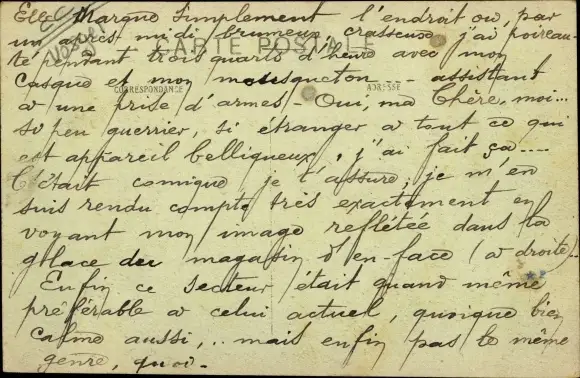 Elle Marque simplement l'endroit ou, par
un apres midi brumeux, crasseux, j'ai poireau-
CARTE POSTALE
té pendant trois quarts d'heure avec mon
casque et mon mousqueton --- assistant
CORRESPONDANCE
ADRESSE
a une prise d'armes - Oui, ma Chère, moi...
si peu guerrier, si étranger a tout ce qui
est appareil belliqueux, j'ai fait ça....
C'était comique je t'assure; je m'en
suis rendu compte très exactement en
voyant mon image reflétée dans la
glace du magasin d'en-face (a droite)..
Enfin ce secteur était quand même
préférable a celui actuel, quoique bien
calme aussi,... mais enfin pas le même
genre, quoi.